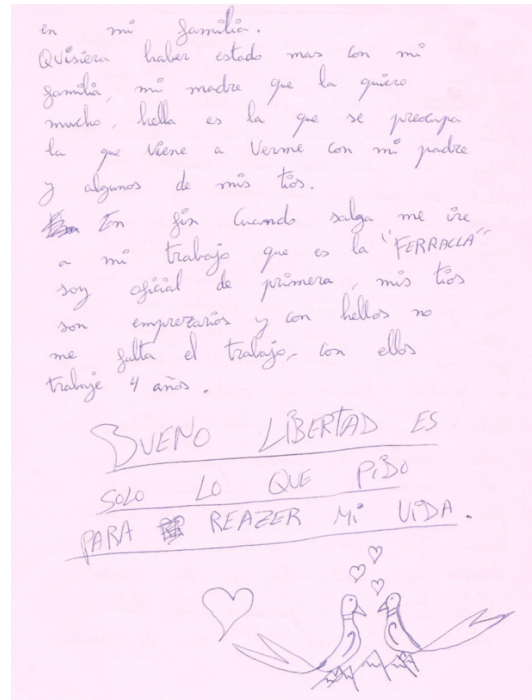 en mi familia.
Quisiera haber estado mas con mi
familia, mi madre que la quiero
mucho, hella es la que se preocupa
la que viene a verme con mi padre
y algunos de mis tios.
En fin cuando salga me ire
a mi trabajo que es la "FERRACLLA"
soy oficial de primera, mis tios
son emprezarios y con hellos no
me falta el trabajo, con ellos
trabaje 4 años.
BUENO LIBERTAD ES
SOLO LO QUE PIDO
PARA REAZER Mi VIDA.